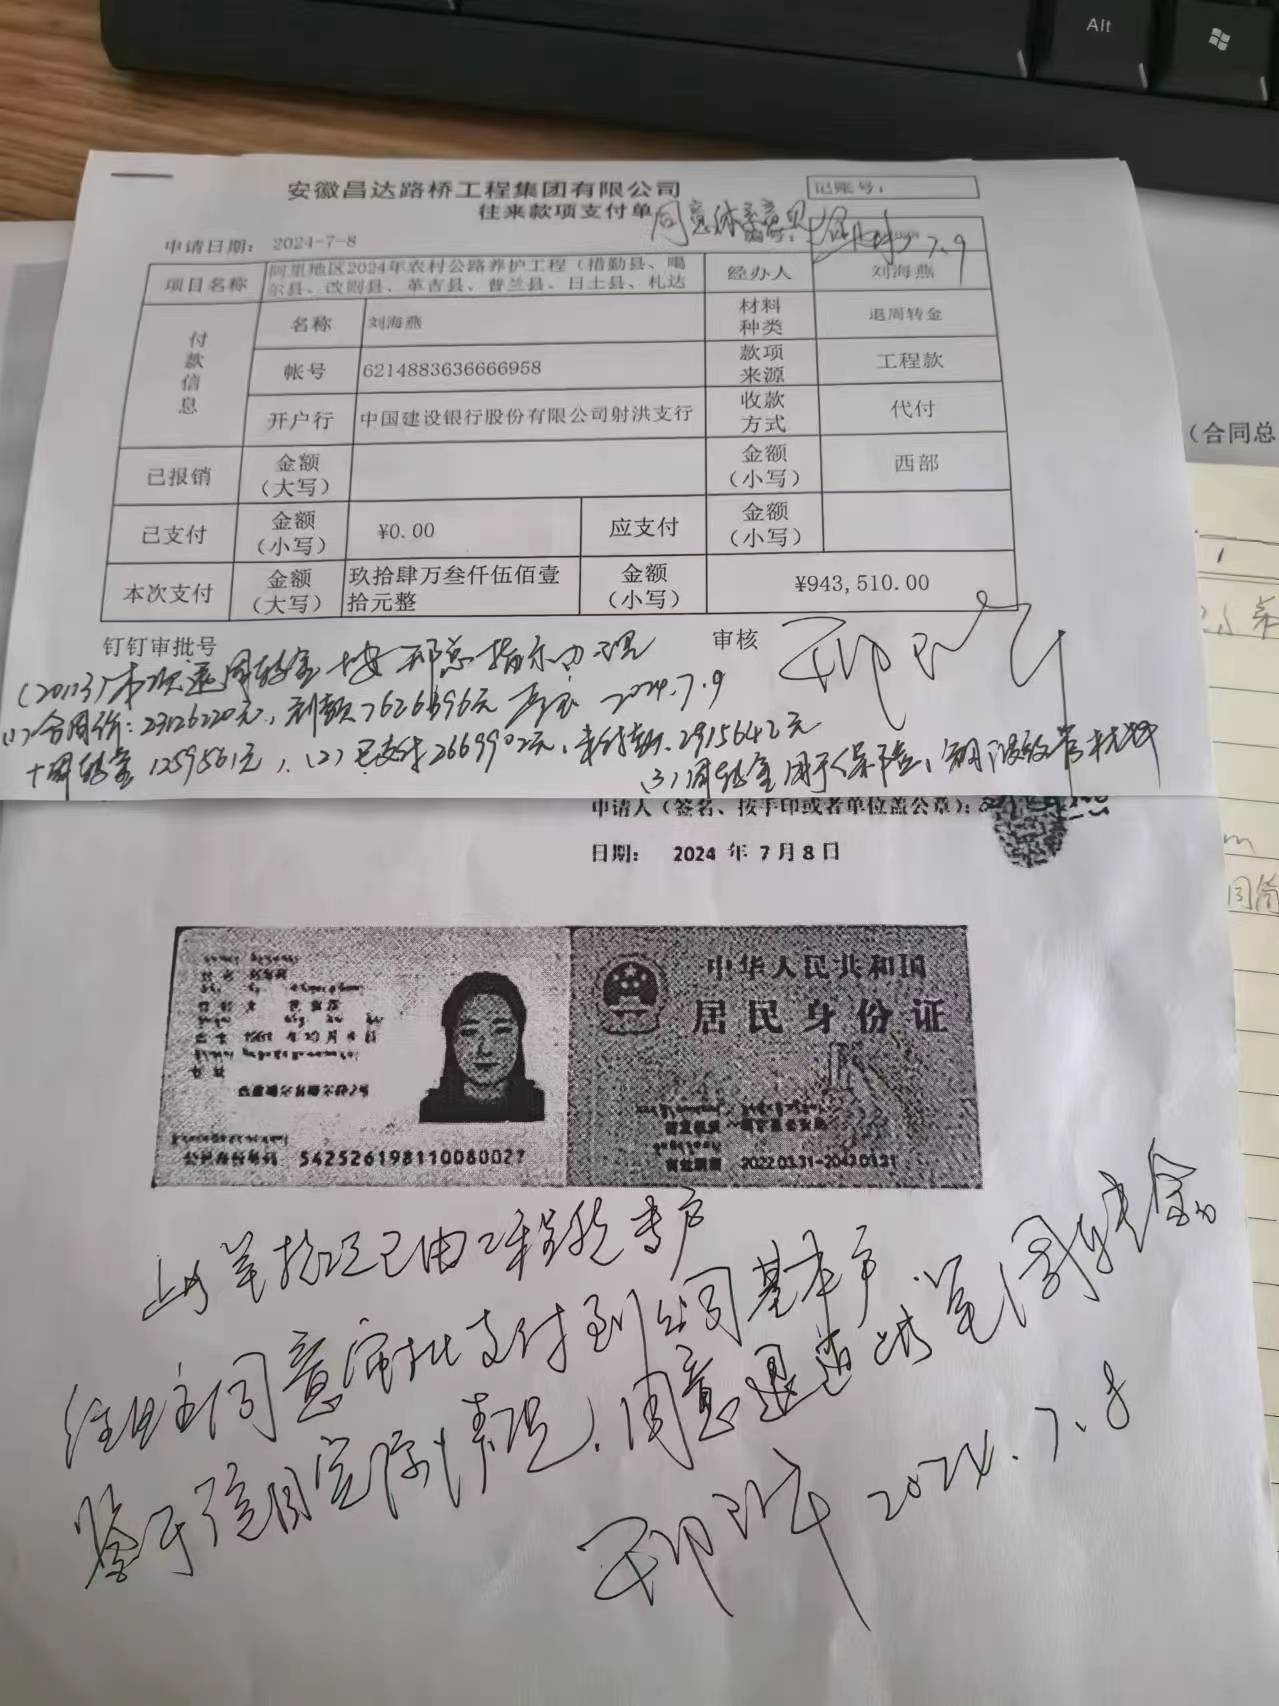 Alt
安徽昌达路桥工程集团有限公司
记账号：
往来款项支付单
同意
7.9
申请日期： 2024-7-8
项目名称 阿里地区2024年农村公路养护工程（措勤县、噶尔县、改则县、革吉县、普兰县、日土县、札达 经办人 刘海燕
付款信息 名称 刘海燕 材料种类 退周转金
帐号 6214883636666958 款项来源 工程款
开户行 中国建设银行股份有限公司射洪支行 收款方式 代付
已报销 金额（大写） 金额（小写） 西部
已支付 金额（小写） ¥0.00 应支付 金额（小写）
本次支付 金额（大写） 玖拾肆万叁仟伍佰壹拾元整 金额（小写） ¥943,510.00
钉钉审批号 审核
本次退周转金按邢总指示办理
2024.7.9
(1)合同价：23126220元，到款7626896元
+周转金1259561元，(2)已支付2669902元，未付款2915642元
(3)周转金用于保险、
（合同总
申请人（签名、按手印或者单位盖公章）：
日期： 2024 年 7 月 8 日
中华人民共和国
居民身份证
542526198110080027
2022.03.31-2042.03.31
此笔款项已由工程款专户
经业主同意审批支付到公司基本户
鉴于项目实际情况，同意退还此笔周转金。
2024.7.8